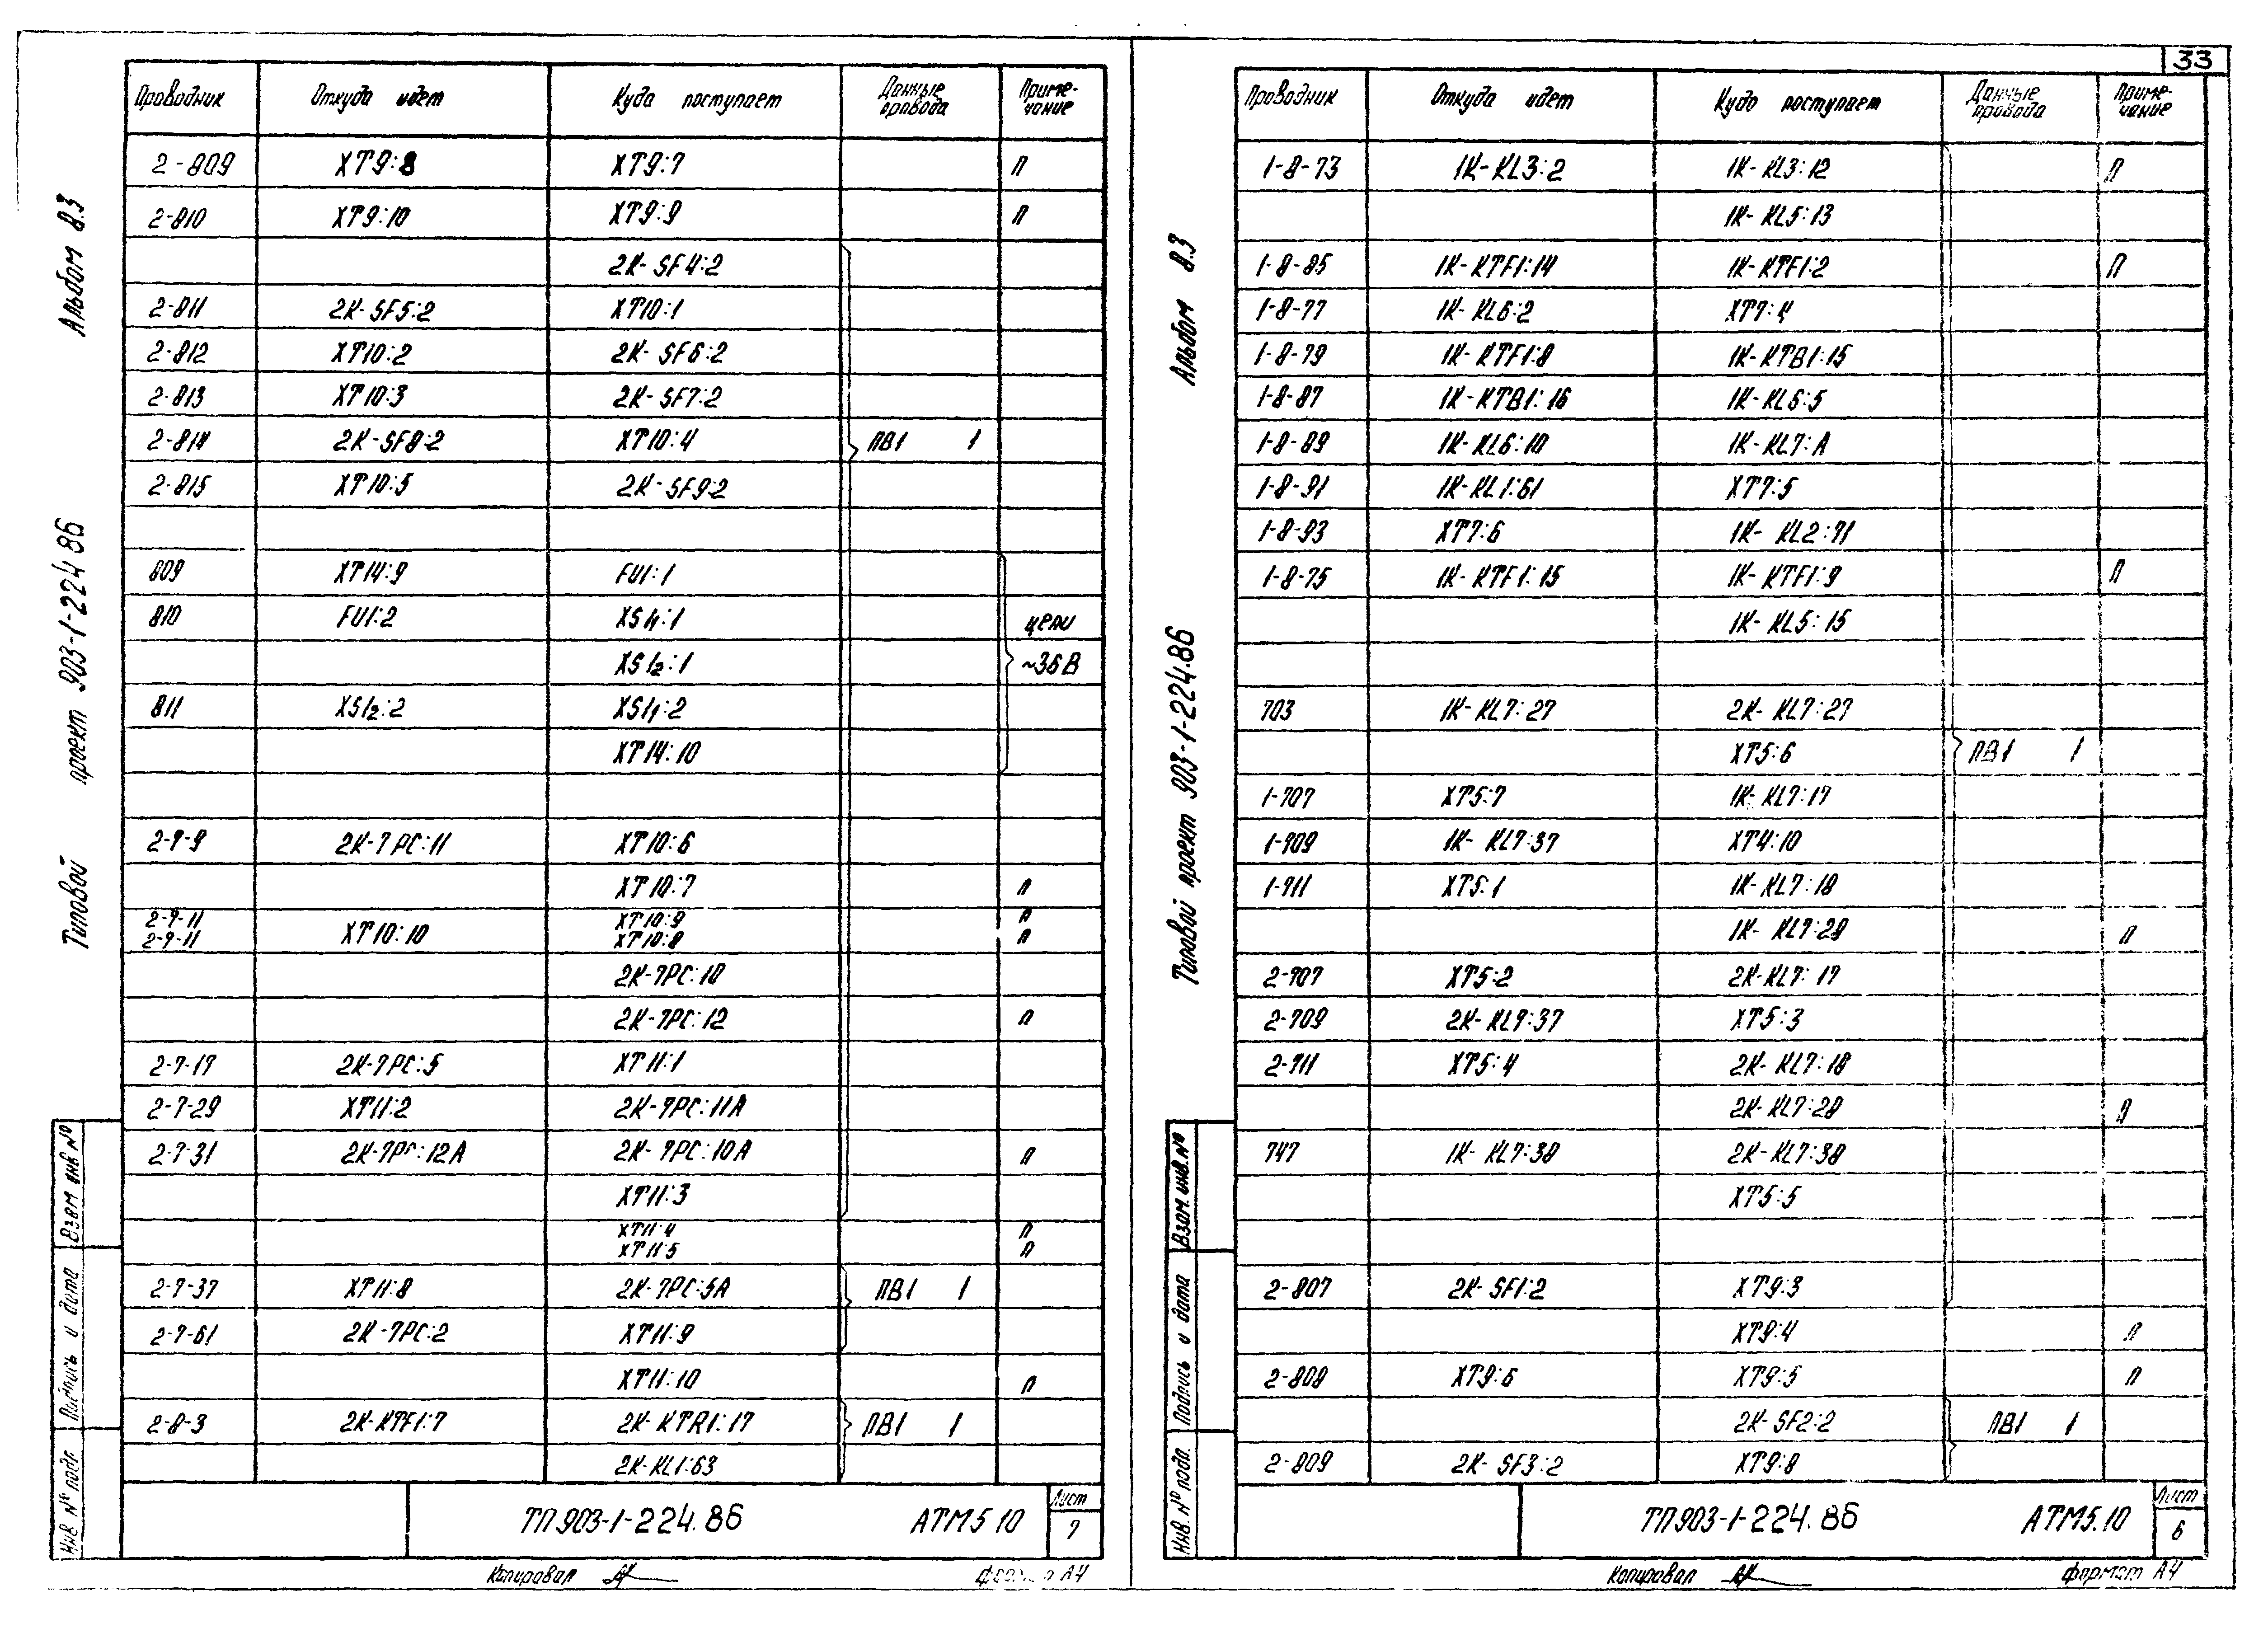 33
Альбом 8.3
Типовой проект 903-1-224 86
Взам инв №
Подпись и дата
Инв. № подл.
Проводник Откуда идет Куда поступает Данные провода Примечание
2-809 XT9:8 XT9:7 П
2-810 XT9:10 XT9:9 П
2K-SF4:2
2-811 2K-SF5:2 XT10:1
2-812 XT10:2 2K-SF6:2
2-813 XT10:3 2K-SF7:2
2-814 2K-SF8:2 XT10:4 ПВ1 1
2-815 XT10:5 2K-SF9:2
809 XT14:9 FU1:1
810 FU1:2 XS1₁:1 цепи
XS1₂:1 ~36В
811 XS1₂:2 XS1₁:2
XT14:10
2-7-9 2K-7PC:11 XT10:6
XT10:7 П
2-7-11 XT10:9 П
2-7-11 XT10:10 XT10:8 П
2K-7PC:10
2K-7PC:12 П
2-7-17 2K-7PC:5 XT11:1
2-7-29 XT11:2 2K-7PC:11A
2-7-31 2K-7PC:12A 2K-7PC:10A П
XT11:3
XT11:4 П
XT11:5 П
2-7-37 XT11:8 2K-7PC:5A ПВ1 1
2-7-61 2K-7PC:2 XT11:9
XT11:10 П
2-8-3 2K-KTF1:7 2K-KTR1:17 ПВ1 1
2K-KL1:63
ТП903-1-224.86 АТМ5 10 Лист
7
Копировал Формат А4
Альбом 8.3
Типовой проект 903-1-224.86
Взам. инв. №
Подпись и дата
Инв. № подл.
Проводник Откуда идет Куда поступает Данные провода Примечание
1-8-73 1K-KL3:2 1K-KL3:12 П
1K-KL5:13
1-8-85 1K-KTF1:14 1K-KTF1:2 П
1-8-77 1K-KL6:2 XT7:4
1-8-79 1K-KTF1:8 1K-KTB1:15
1-8-87 1K-KTB1:16 1K-KL6:5
1-8-89 1K-KL6:10 1K-KL7:A
1-8-91 1K-KL1:61 XT7:5
1-8-93 XT7:6 1K-KL2:71
1-8-75 1K-KTF1:15 1K-KTF1:9 П
1K-KL5:15
703 1K-KL7:27 2K-KL7:27
XT5:6 ПВ1 1
1-707 XT5:7 1K-KL7:17
1-709 1K-KL7:37 XT4:10
1-711 XT5:1 1K-KL7:18
1K-KL7:28 П
2-707 XT5:2 2K-KL7:17
2-709 2K-KL7:37 XT5:3
2-711 XT5:4 2K-KL7:18
2K-KL7:28 П
747 1K-KL7:38 2K-KL7:38
XT5:5
2-807 2K-SF1:2 XT9:3
XT9:4 П
2-808 XT9:6 XT9:5 П
2K-SF2:2 ПВ1 1
2-809 2K-SF3:2 XT9:8
ТП903-1-224.86 АТМ5.10 Лист
6
Копировал Формат А4